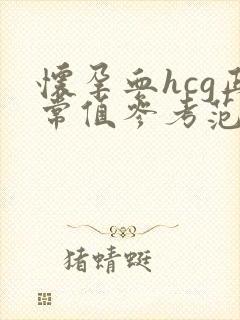 懷孕血hcg正
常值參考范
猪蜻蜓